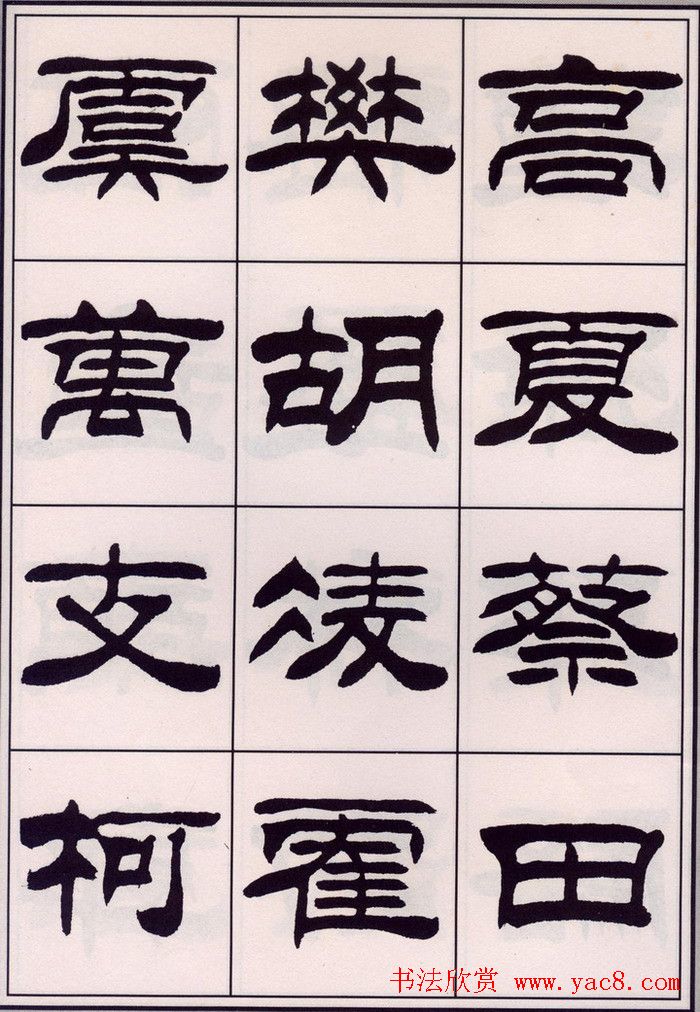 高夏蔡田
樊胡凌霍
虞萬支柯
书法欣赏 www.yac8.com